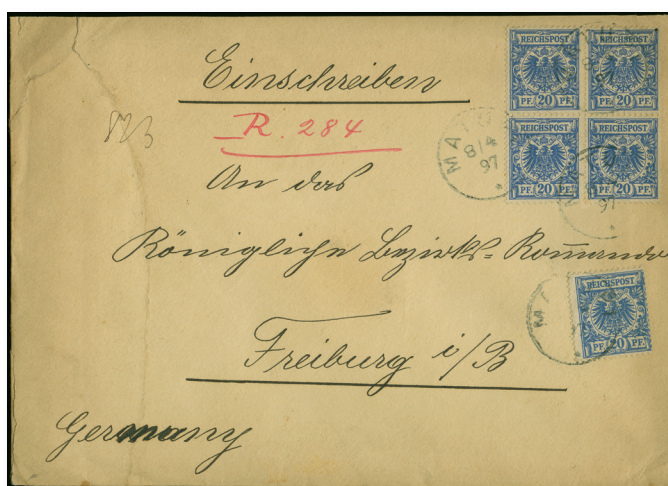 Einschreiben
R. 284
An das
Königliche Bezirks-Kom̅ando
Freiburg i/B
Germany
REICHSPOST
PF. 20 PF.
REICHSPOST
PF. 20 PF.
REICHSPOST
PF. 20 PF.
REICHSPOST
PF. 20 PF.
8/4
97
97
REICHSPOST
PF. 20 PF.